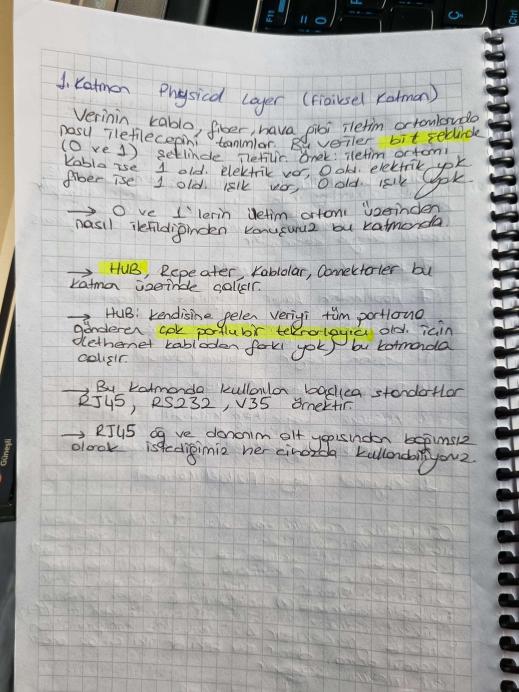 1. Katman Physical Layer (Fiziksel Katman)
Verinin kablo, fiber, hava gibi iletim ortamlarında
nasıl iletileceğini tanımlar. Bu veriler bit şeklinde
(0 ve 1) şeklinde iletilir. Örnek: iletim ortamı
kablo ise 1 old. elektrik var, 0 old. elektrik yok
fiber ise 1 old. ışık var, 0 old. ışık yok.
→ 0 ve 1'lerin iletim ortamı üzerinden
nasıl iletildiğinden konuşuruz bu katmanda.
→ HUB, Repeater, Kablolar, Connektörler bu
katman üzerinde çalışır.
→ HUB: kendisine gelen veriyi tüm portlarına
gönderen çok portlu bir tekrarlayıcı old. için
(ethernet kablodan farkı yok) bu katmanda
çalışır.
→ Bu katmanda kullanılan başlıca standartlar
RJ45, RS232, V35 örnektir.
→ RJ45 ağ ve donanım alt yapısından bağımsız
olarak istediğimiz her cihazda kullanabiliyoruz.
Güneşli
F11
Ctrl
Ç
O
P